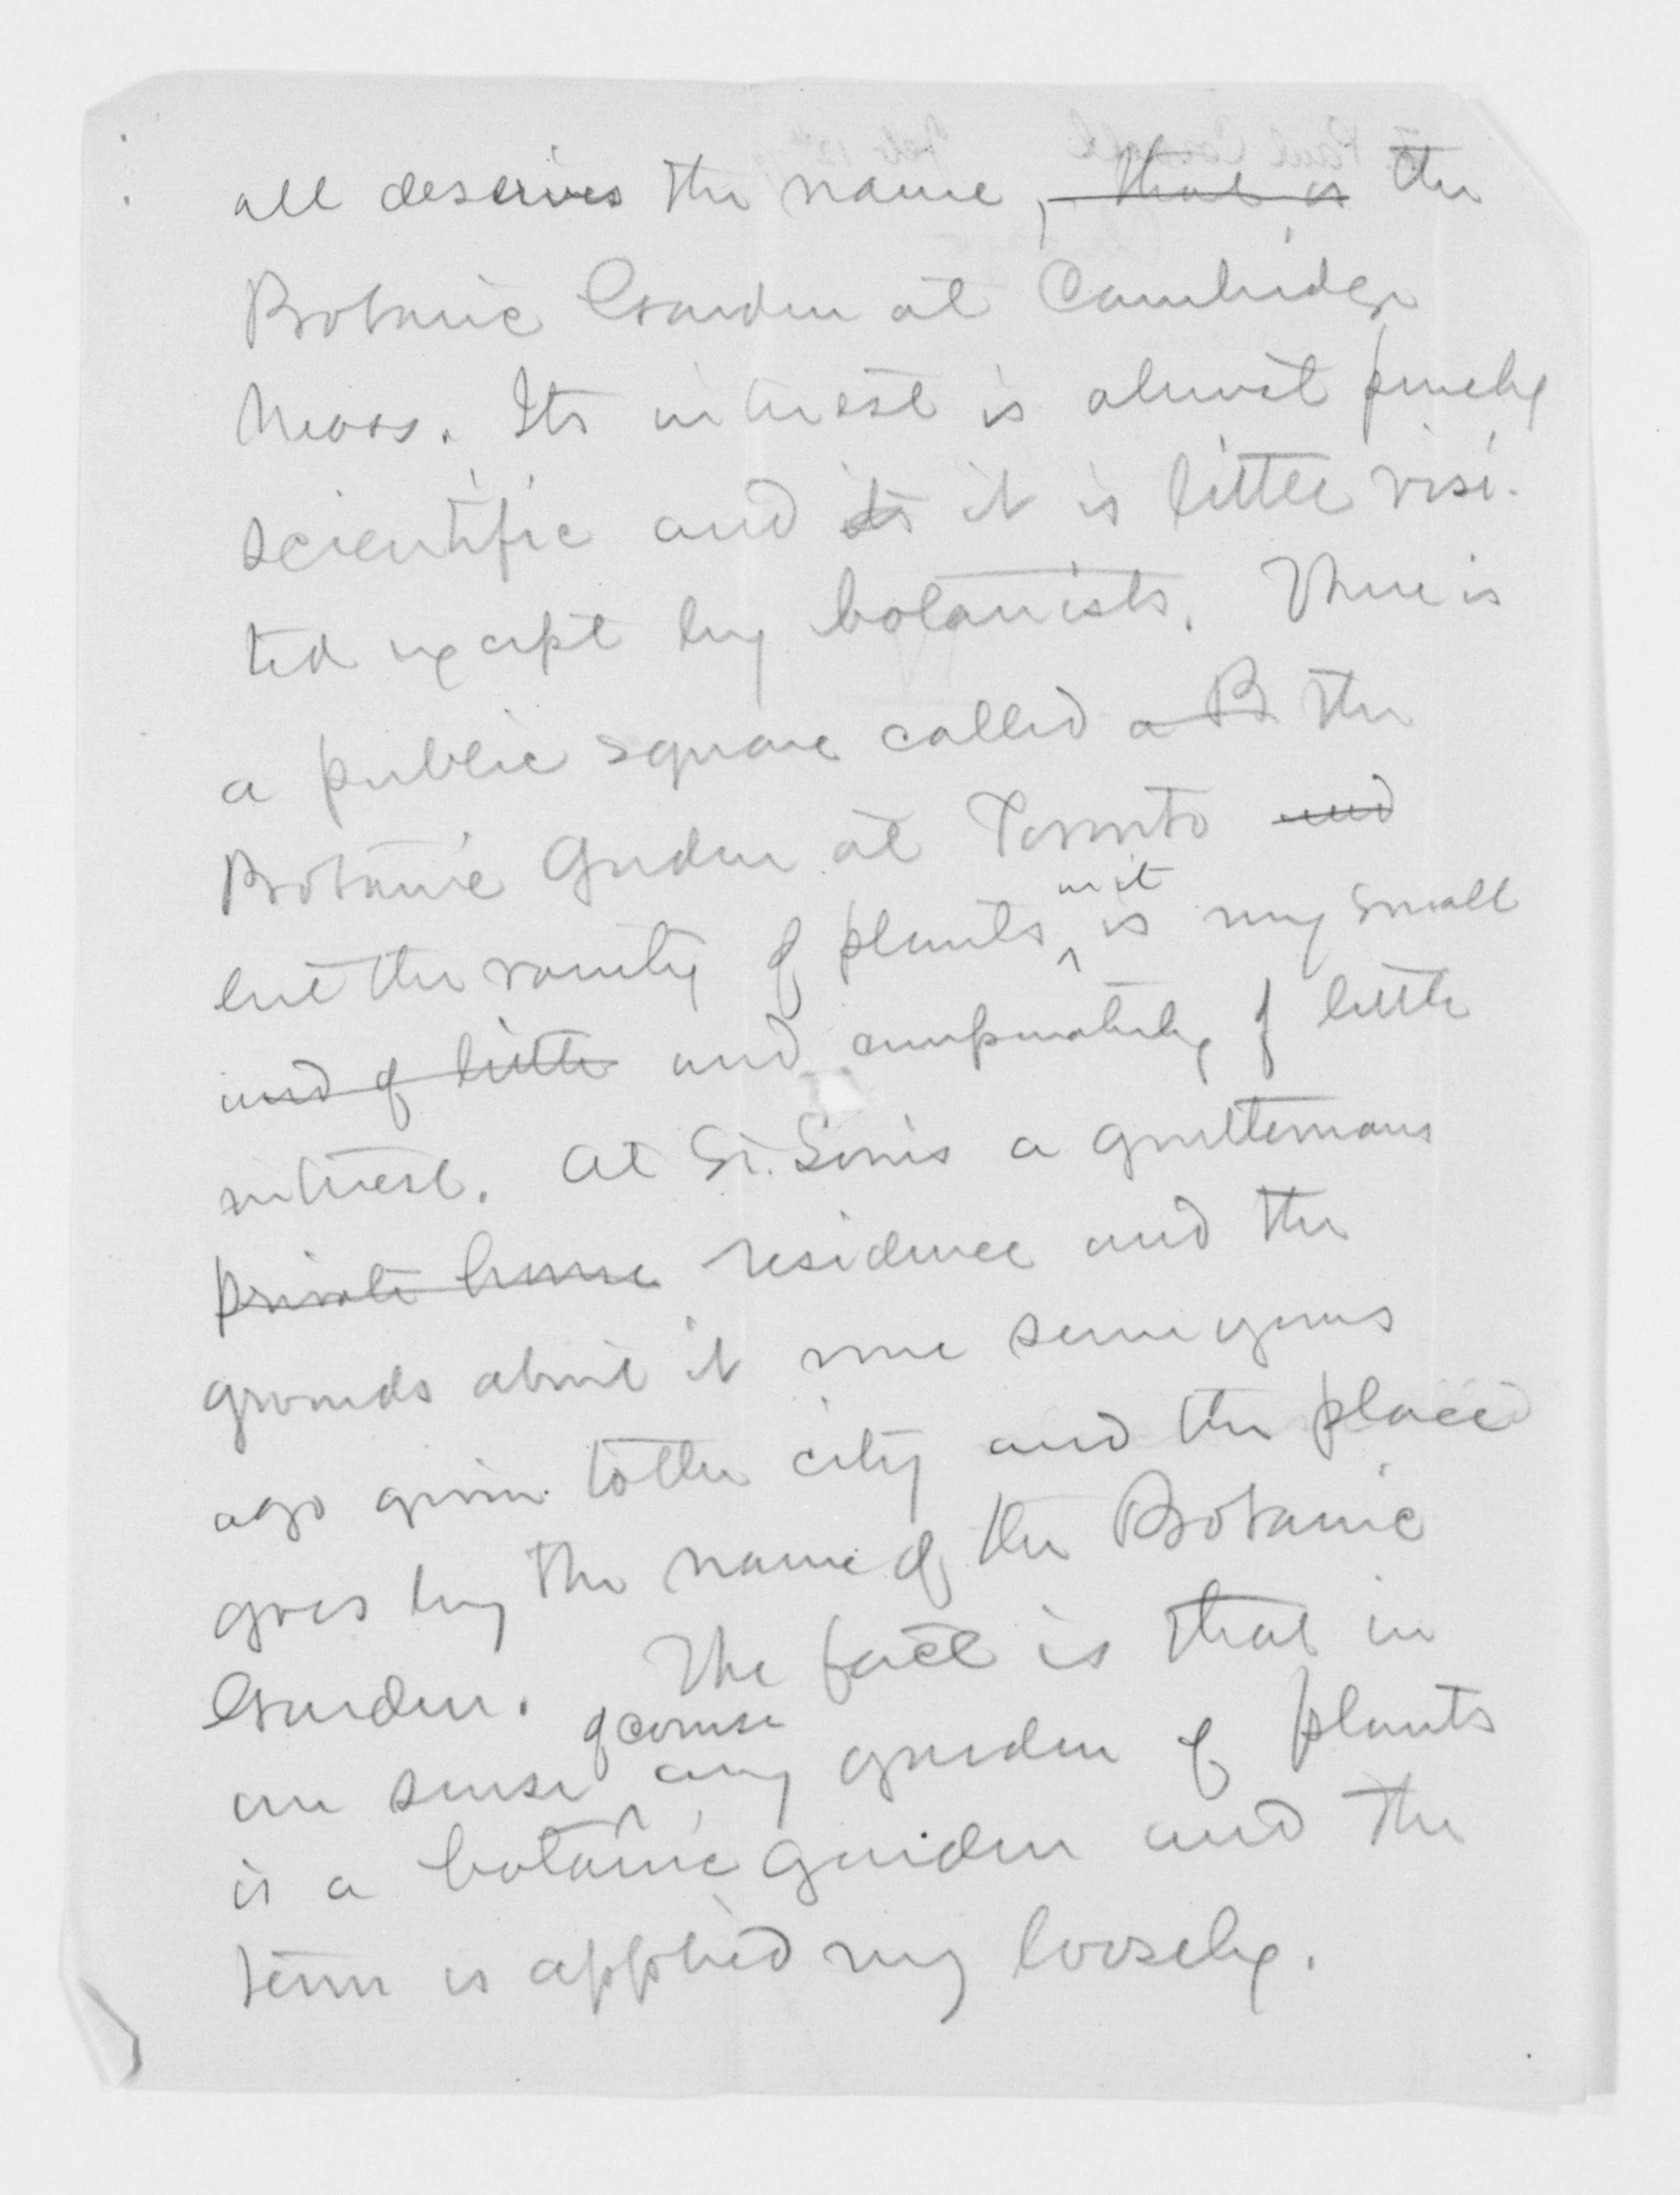 all deserves the name, ~~that is~~ the
Botanic Garden at Cambridge
Mass. Its interest is almost purely
scientific and ~~its~~ it is little visi-
ted except by botanists. There is
a public square called ~~a B~~ the
Botanic Garden at Toronto ~~and~~
but the variety of plants in it is very small
~~and of little~~ and comparatively of little
interest. At St. Louis a gentlemans
~~private house~~ residence and the
grounds about it were some years
ago given to the city and the place
goes by the name of the Botanic
Garden. The fact is that in
one sense of course any garden of plants
is a botanic garden and the
term is applied very loosely.